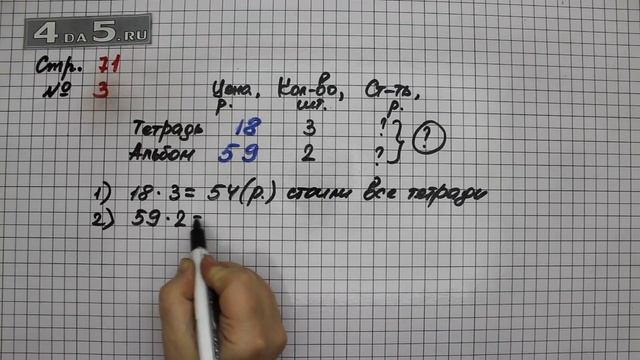 4 DA 5.RU
Стр. 71
№ 3
Цена, Кол-во, Ст-ть,
р. шт. р.
Тетрадь 18 3 ? } ?
Альбом 59 2 ?
1) 18 · 3 = 54 (р.) стоили все тетради
2) 59 · 2 =